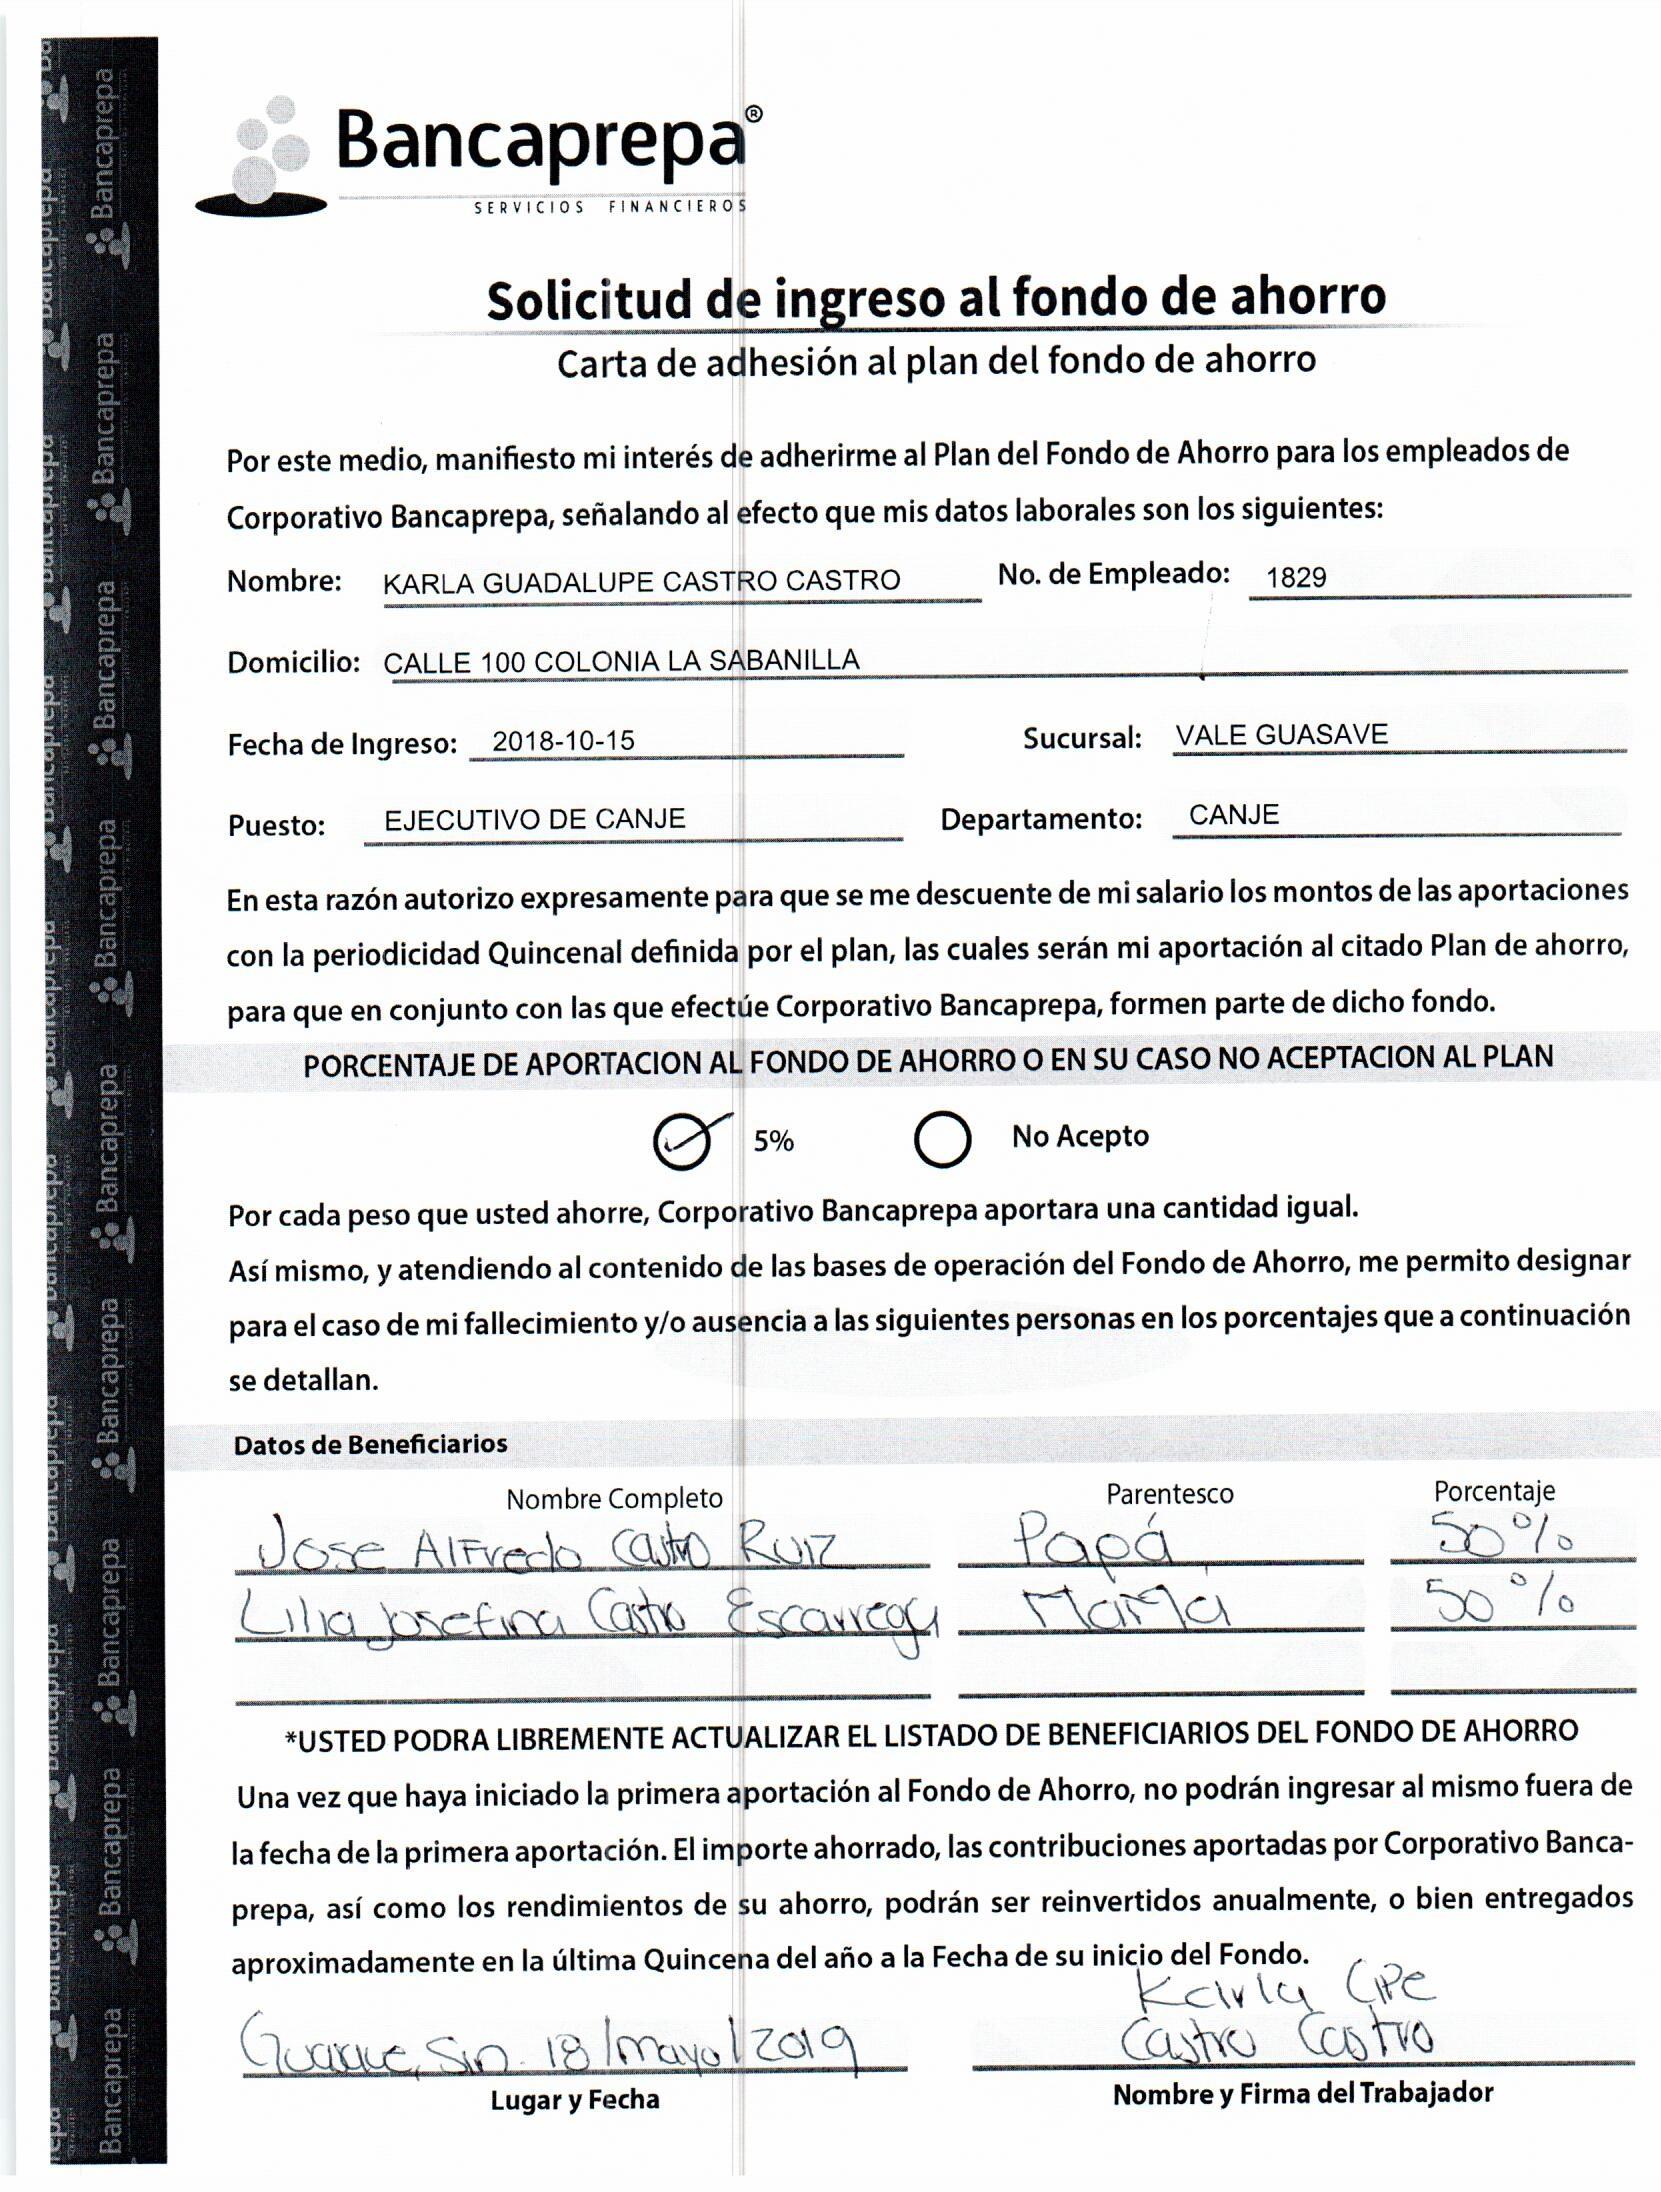 Bancaprepa®
SERVICIOS FINANCIEROS
Solicitud de ingreso al fondo de ahorro
Carta de adhesión al plan del fondo de ahorro
Por este medio, manifiesto mi interés de adherirme al Plan del Fondo de Ahorro para los empleados de
Corporativo Bancaprepa, señalando al efecto que mis datos laborales son los siguientes:
Nombre: KARLA GUADALUPE CASTRO CASTRO No. de Empleado: 1829
Domicilio: CALLE 100 COLONIA LA SABANILLA
Fecha de Ingreso: 2018-10-15 Sucursal: VALE GUASAVE
Puesto: EJECUTIVO DE CANJE Departamento: CANJE
En esta razón autorizo expresamente para que se me descuente de mi salario los montos de las aportaciones
con la periodicidad Quincenal definida por el plan, las cuales serán mi aportación al citado Plan de ahorro,
para que en conjunto con las que efectúe Corporativo Bancaprepa, formen parte de dicho fondo.
PORCENTAJE DE APORTACION AL FONDO DE AHORRO O EN SU CASO NO ACEPTACION AL PLAN
5% No Acepto
Por cada peso que usted ahorre, Corporativo Bancaprepa aportara una cantidad igual.
Así mismo, y atendiendo al contenido de las bases de operación del Fondo de Ahorro, me permito designar
para el caso de mi fallecimiento y/o ausencia a las siguientes personas en los porcentajes que a continuación
se detallan.
Datos de Beneficiarios
Nombre Completo Parentesco Porcentaje
Jose Alfredo Castro Ruiz Papá 50%
Lilia Josefina Castro Escarrega Mamá 50%
*USTED PODRA LIBREMENTE ACTUALIZAR EL LISTADO DE BENEFICIARIOS DEL FONDO DE AHORRO
Una vez que haya iniciado la primera aportación al Fondo de Ahorro, no podrán ingresar al mismo fuera de
la fecha de la primera aportación. El importe ahorrado, las contribuciones aportadas por Corporativo Banca-
prepa, así como los rendimientos de su ahorro, podrán ser reinvertidos anualmente, o bien entregados
aproximadamente en la última Quincena del año a la Fecha de su inicio del Fondo.
Karla Gpe
Guasave, Sin. 18/mayo/2019 Castro Castro
Lugar y Fecha Nombre y Firma del Trabajador